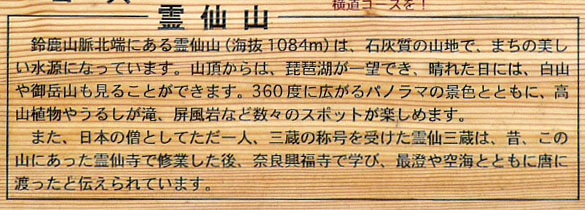 横道コースを!
霊仙山
鈴鹿山脈北端にある霊仙山(海抜1084m)は、石灰質の山地で、まちの美し
い水源になっています。山頂からは、琵琶湖が一望でき、晴れた日には、白山
や御岳山も見ることができます。360度に広がるパノラマの景色とともに、高
山植物やうるしが滝、屏風岩など数々のスポットが楽しめます。
また、日本の僧としてただ一人、三蔵の称号を受けた霊仙三蔵は、昔、この
山にあった霊仙寺で修業した後、奈良興福寺で学び、最澄や空海とともに唐に
渡ったと伝えられています。